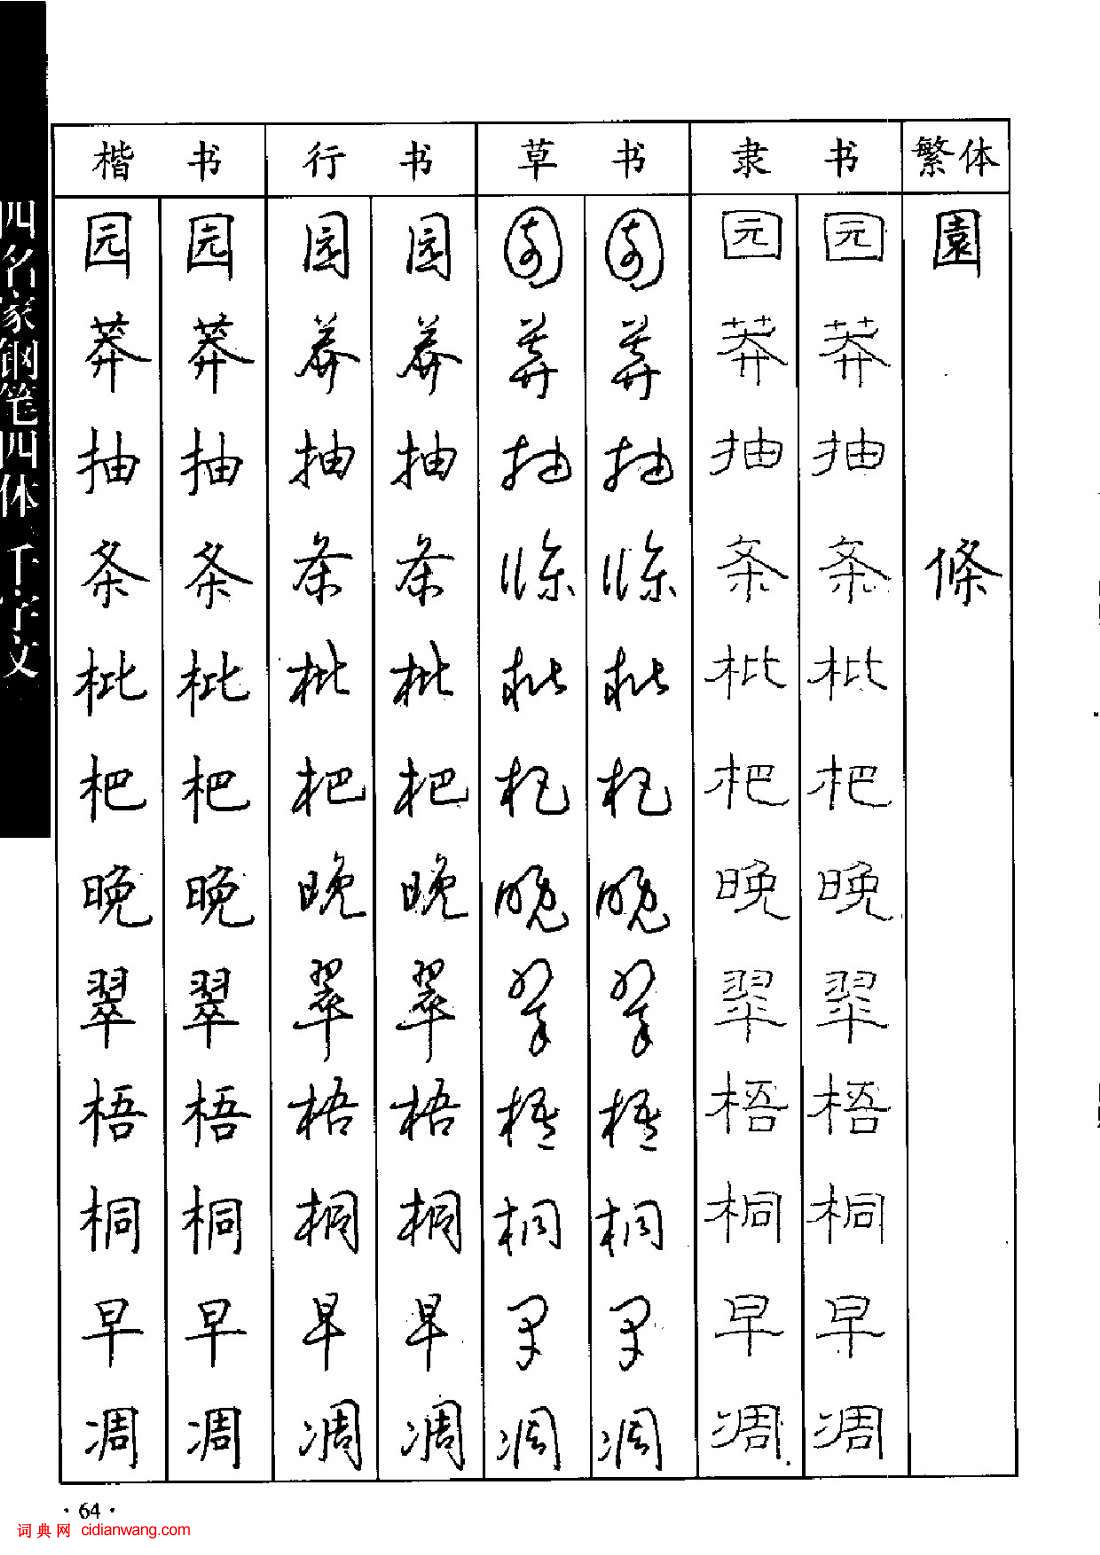 四名家钢笔四体千字文
楷书 行书 草书 隶书 繁体
园 园 园 园 园 园 园 园 園
莽 莽 莽 莽 莽 莽 莽 莽
抽 抽 抽 抽 抽 抽 抽 抽
条 条 条 条 條 條 条 条 條
枇 枇 枇 枇 枇 枇 枇 枇
杷 杷 杷 杷 杷 杷 杷 杷
晚 晚 晚 晚 晚 晚 晚 晚
翠 翠 翠 翠 翠 翠 翠 翠
梧 梧 梧 梧 梧 梧 梧 梧
桐 桐 桐 桐 桐 桐 桐 桐
早 早 早 早 早 早 早 早
凋 凋 凋 凋 凋 凋 凋 凋
·64·
词典网 cidianwang.com